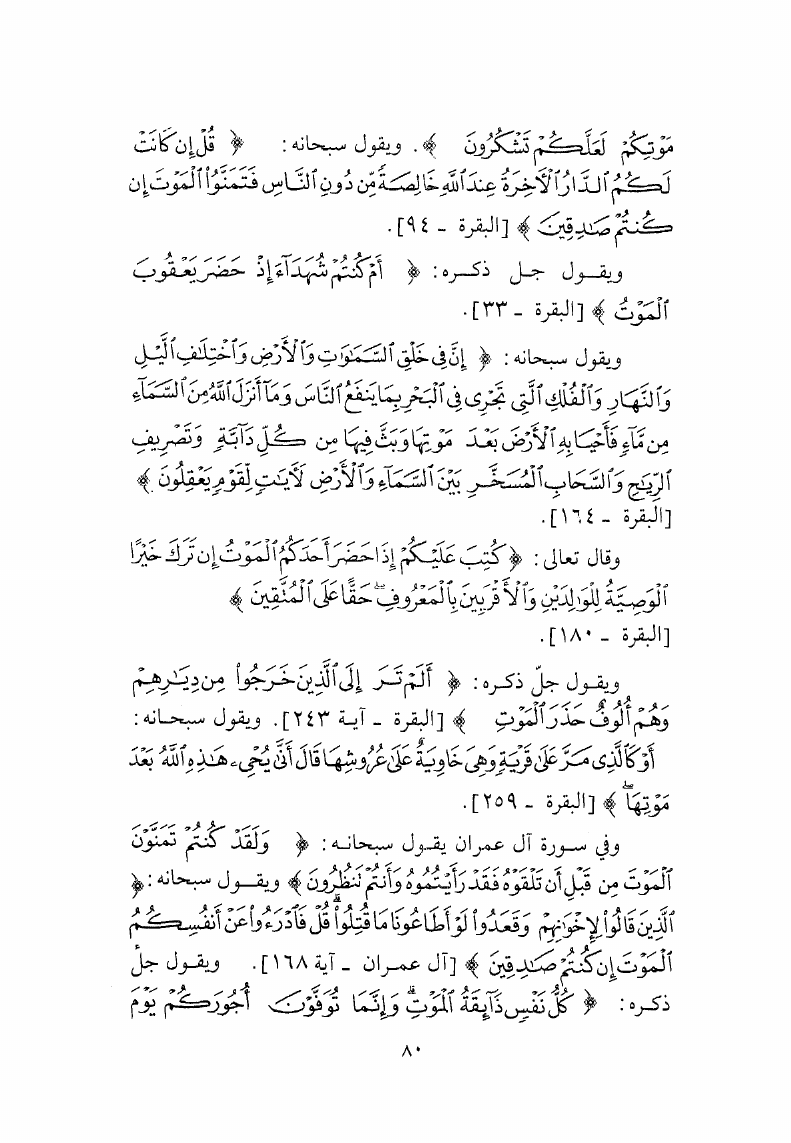 مَوْتِكُمْ لَعَلَّكُمْ تَشْكُرُونَ ﴾. ويقول سبحانه: ﴿ قُلْ إِن كَانَتْ
لَكُمُ الدَّارُ الْآخِرَةُ عِندَ اللَّهِ خَالِصَةً مِّن دُونِ النَّاسِ فَتَمَنَّوُا الْمَوْتَ إِن
كُنتُمْ صَادِقِينَ ﴾ [البقرة ـ ٩٤].
ويقول جل ذكره: ﴿ أَمْ كُنتُمْ شُهَدَاءَ إِذْ حَضَرَ يَعْقُوبَ
الْمَوْتُ ﴾ [البقرة ـ ٣٣].
ويقول سبحانه: ﴿ إِنَّ فِي خَلْقِ السَّمَاوَاتِ وَالْأَرْضِ وَاخْتِلَافِ اللَّيْلِ
وَالنَّهَارِ وَالْفُلْكِ الَّتِي تَجْرِي فِي الْبَحْرِ بِمَا يَنفَعُ النَّاسَ وَمَا أَنزَلَ اللَّهُ مِنَ السَّمَاءِ
مِن مَّاءٍ فَأَحْيَا بِهِ الْأَرْضَ بَعْدَ مَوْتِهَا وَبَثَّ فِيهَا مِن كُلِّ دَابَّةٍ وَتَصْرِيفِ
الرِّيَاحِ وَالسَّحَابِ الْمُسَخَّرِ بَيْنَ السَّمَاءِ وَالْأَرْضِ لَآيَاتٍ لِّقَوْمٍ يَعْقِلُونَ ﴾
[البقرة ـ ١٦٤].
وقال تعالى: ﴿ كُتِبَ عَلَيْكُمْ إِذَا حَضَرَ أَحَدَكُمُ الْمَوْتُ إِن تَرَكَ خَيْرًا
الْوَصِيَّةُ لِلْوَالِدَيْنِ وَالْأَقْرَبِينَ بِالْمَعْرُوفِ ۖ حَقًّا عَلَى الْمُتَّقِينَ ﴾
[البقرة ـ ١٨٠].
ويقول جلّ ذكره: ﴿ أَلَمْ تَرَ إِلَى الَّذِينَ خَرَجُوا مِن دِيَارِهِمْ
وَهُمْ أُلُوفٌ حَذَرَ الْمَوْتِ ﴾ [البقرة ـ آية ٢٤٣]. ويقول سبحانه:
أَوْ كَالَّذِي مَرَّ عَلَىٰ قَرْيَةٍ وَهِيَ خَاوِيَةٌ عَلَىٰ عُرُوشِهَا قَالَ أَنَّىٰ يُحْيِي هَٰذِهِ اللَّهُ بَعْدَ
مَوْتِهَا ۖ ﴾ [البقرة ـ ٢٥٩].
وفي سورة آل عمران يقول سبحانه: ﴿ وَلَقَدْ كُنتُمْ تَمَنَّوْنَ
الْمَوْتَ مِن قَبْلِ أَن تَلْقَوْهُ فَقَدْ رَأَيْتُمُوهُ وَأَنتُمْ تَنظُرُونَ ﴾ ويقول سبحانه: ﴿
الَّذِينَ قَالُوا لِإِخْوَانِهِمْ وَقَعَدُوا لَوْ أَطَاعُونَا مَا قُتِلُوا ۗ قُلْ فَادْرَءُوا عَنْ أَنفُسِكُمُ
الْمَوْتَ إِن كُنتُمْ صَادِقِينَ ﴾ [آل عمران ـ آية ١٦٨]. ويقول جلّ
ذكره: ﴿ كُلُّ نَفْسٍ ذَائِقَةُ الْمَوْتِ ۗ وَإِنَّمَا تُوَفَّوْنَ أُجُورَكُمْ يَوْمَ
٨٠